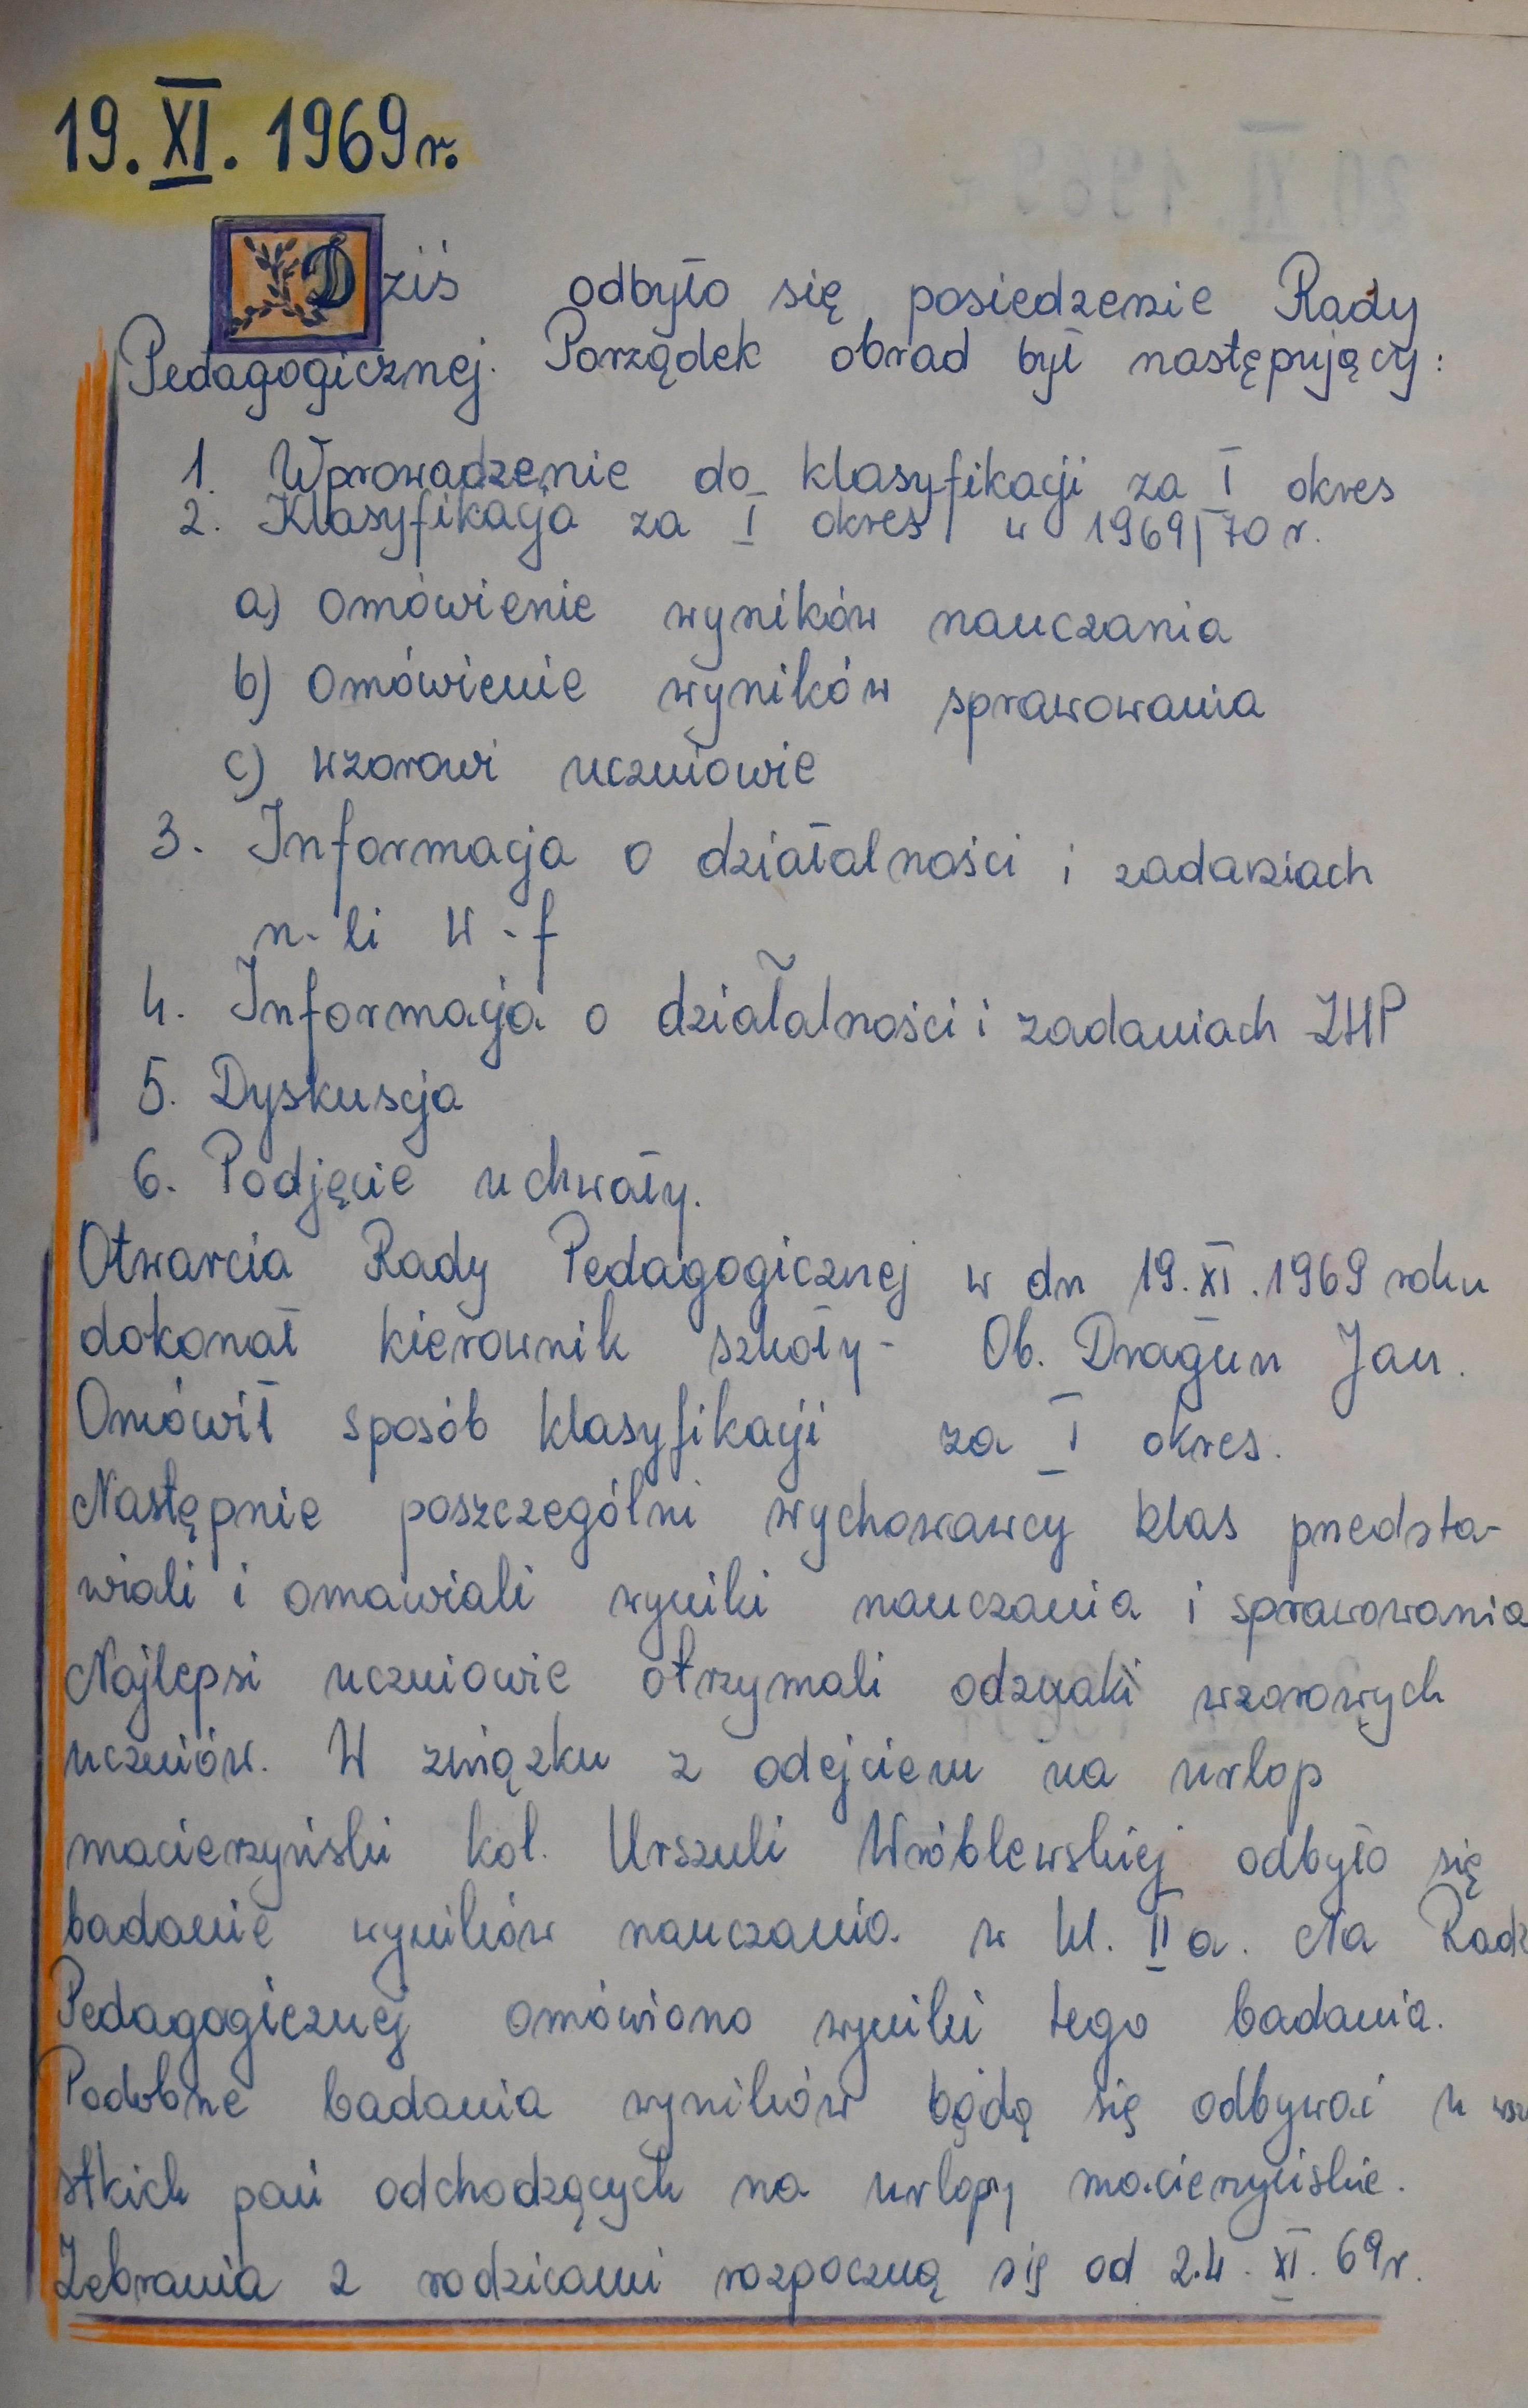 19. XI. 1969 r.
Dziś odbyło się posiedzenie Rady
Pedagogicznej. Porządek obrad był następujący:
1. Wprowadzenie do klasyfikacji za I okres
2. Klasyfikacja za I okres w 1969/70 r.
a) omówienie wyników nauczania
b) omówienie wyników sprawowania
c) wzorowi uczniowie
3. Informacja o działalności i zadaniach
n-li w-f
4. Informacja o działalności i zadaniach ZHP
5. Dyskusja
6. Podjęcie uchwały.
Otwarcia Rady Pedagogicznej w dn 19. XI. 1969 roku
dokonał kierownik szkoły - Ob. Dragun Jan.
Omówił sposób klasyfikacji za I okres.
Następnie poszczególni wychowawcy klas przedsta-
wiali i omawiali wyniki nauczania i sprawowania
Najlepsi uczniowie otrzymali odznaki wzorowych
uczniów. W związku z odejściem na urlop
macierzyński kol. Urszuli Wróblewskiej odbyło się
badanie wyników nauczania w kl. II a. Na Radz
Pedagogicznej omówiono wyniki tego badania.
Podobne badania wyników będą się odbywać u wsz
stkich pań odchodzących na urlopy macierzyńskie.
Zebrania z rodzicami rozpoczną się od 24. XI. 69 r.